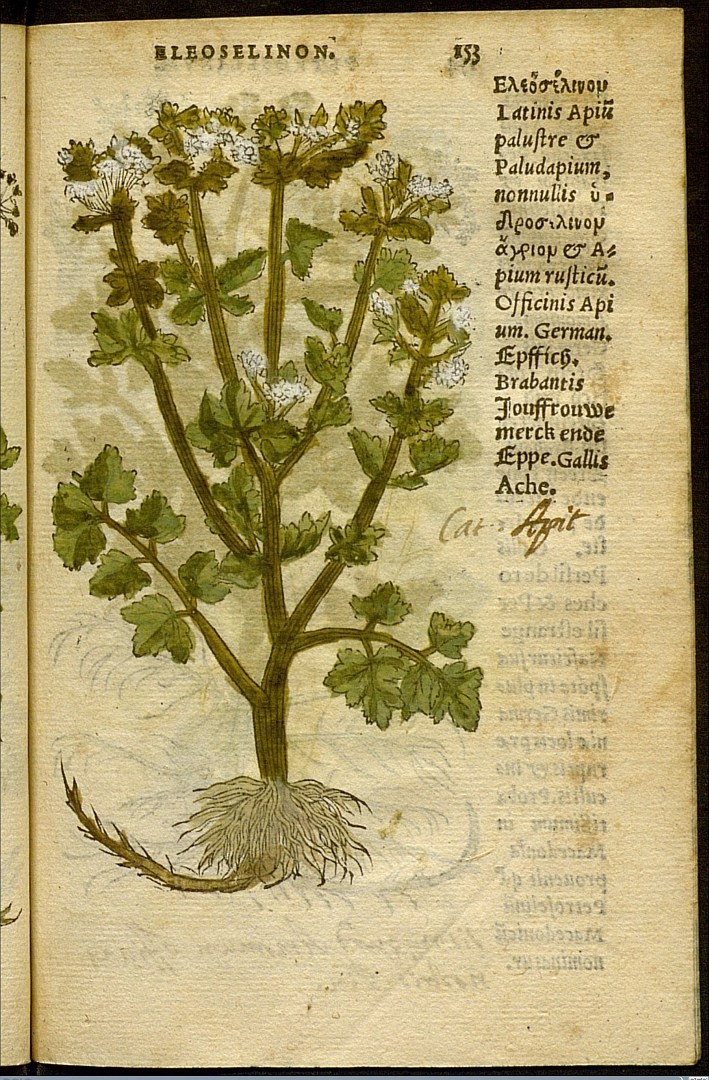 ELEOSELINON. 153
Ελεὅσἔλινον
Latinis Apiū
palustre &
Paludapium,
nonnullis ὑ-
δροσέλινον
ἄγριον & A-
pium rusticū.
Officinis Api
um. German.
Epffich.
Brabantis
Jouffrouwe
merck ende
Eppe. Gallis
Ache.
Cat. Apit